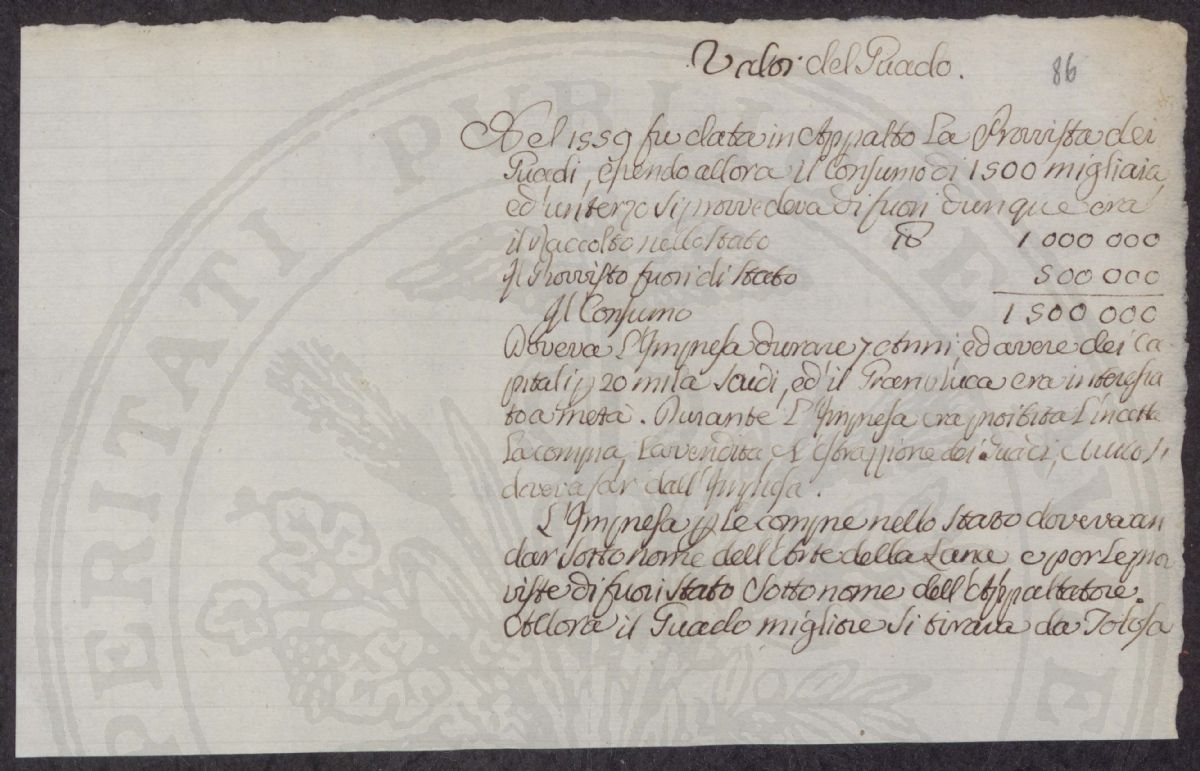 Valor del Guado.
86
Nel 1559 fu data in Appalto La Provvista dei
Guadi, essendo allora il Consumo di 1500 migliaia,
ed' un terzo si provvedeva di fuori dunque era
il Raccolto nello stato ℔ 1 000 000
Il Provvisto fuori di stato 500 000
Il Consumo 1 500 000
Doveva L'Impresa durare 7 Anni, ed avere dei Ca-
pitali p 20 mila Scudi, ed' il Gran Duca era interessa
to a metà. Durante L'Impresa era proibita L'incetta
La compra, La vendita e L'Estrazzione dei Guadi, e tutto si
doveva far dall'Impresa.
L'Impresa p Le compre nello stato doveva an
dar sotto nome dell'Arte della Lana e per Le prov
viste di fuori stato sotto nome dell'Appaltatore.
Allora il Guado migliore si tirava da Tolosa
PERITATI PUBLICAE